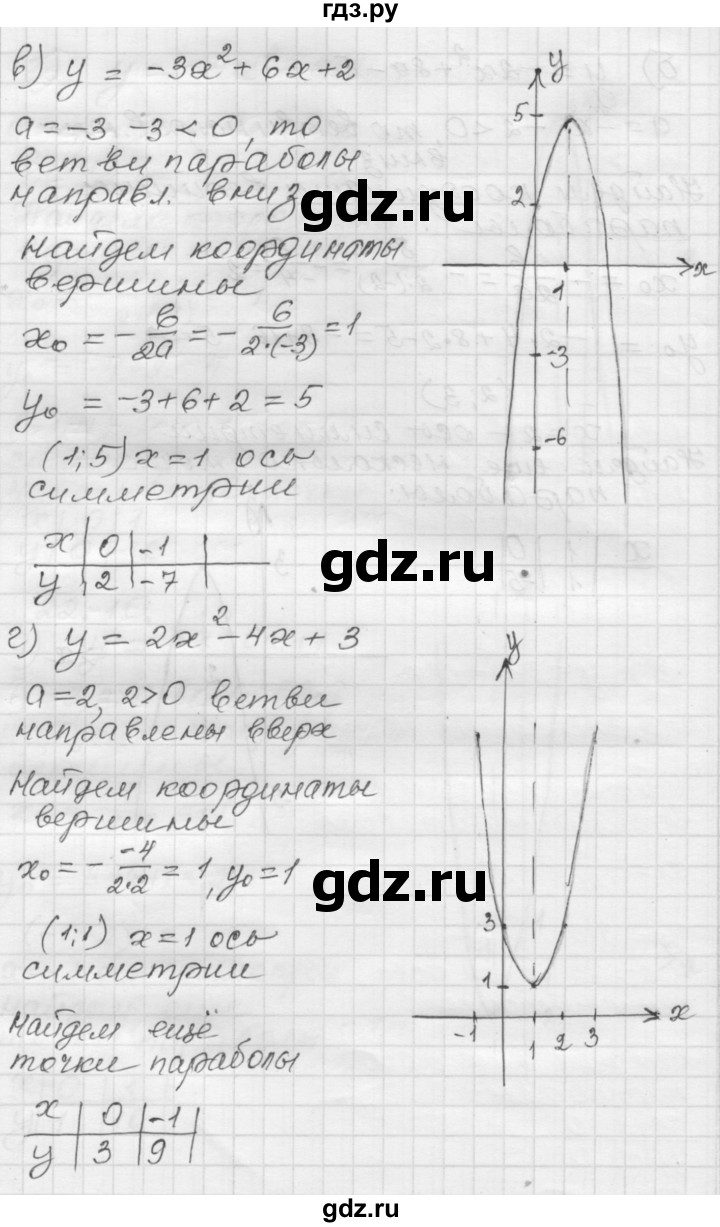 гдз.ру
в) y = -3x² + 6x + 2
a = -3, -3 < 0, то
ветви параболы
направл. вниз
Найдем координаты
вершины
x₀ = - b/2a = - 6/2·(-3) = 1
y₀ = -3 + 6 + 2 = 5
(1;5) x = 1 ось
симметрии
x | 0 | -1 |
y | 2 | -7 |
y
5
2
x
1
-3
-6
gdz.ru
gdz.ru
г) y = 2x² - 4x + 3
a = 2, 2 > 0 ветви
направлены вверх
Найдем координаты
вершины
x₀ = - -4/2·2 = 1, y₀ = 1
(1;1) x = 1 ось
симметрии
Найдем ещё
точки параболы
x | 0 | -1 |
y | 3 | 9 |
y
3
1
x
-1 1 2 3
gdz.ru
gdz.ru